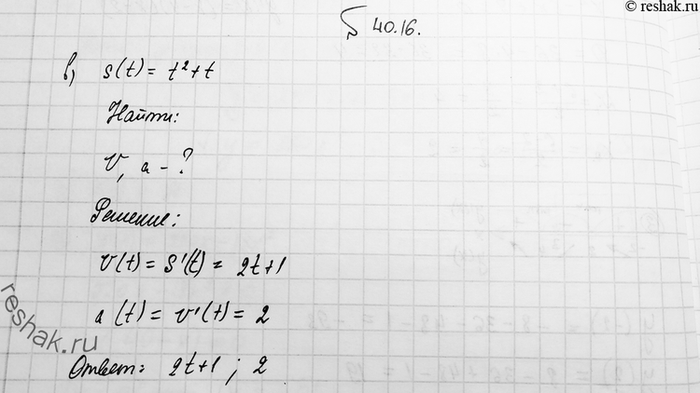 © reshak.ru
§ 40.16.
в) s(t) = t² + t
Найти:
V, a - ?
Решение:
V(t) = S'(t) = 2t+1
a(t) = v'(t) = 2
Ответ: 2t+1 ; 2
reshak.ru